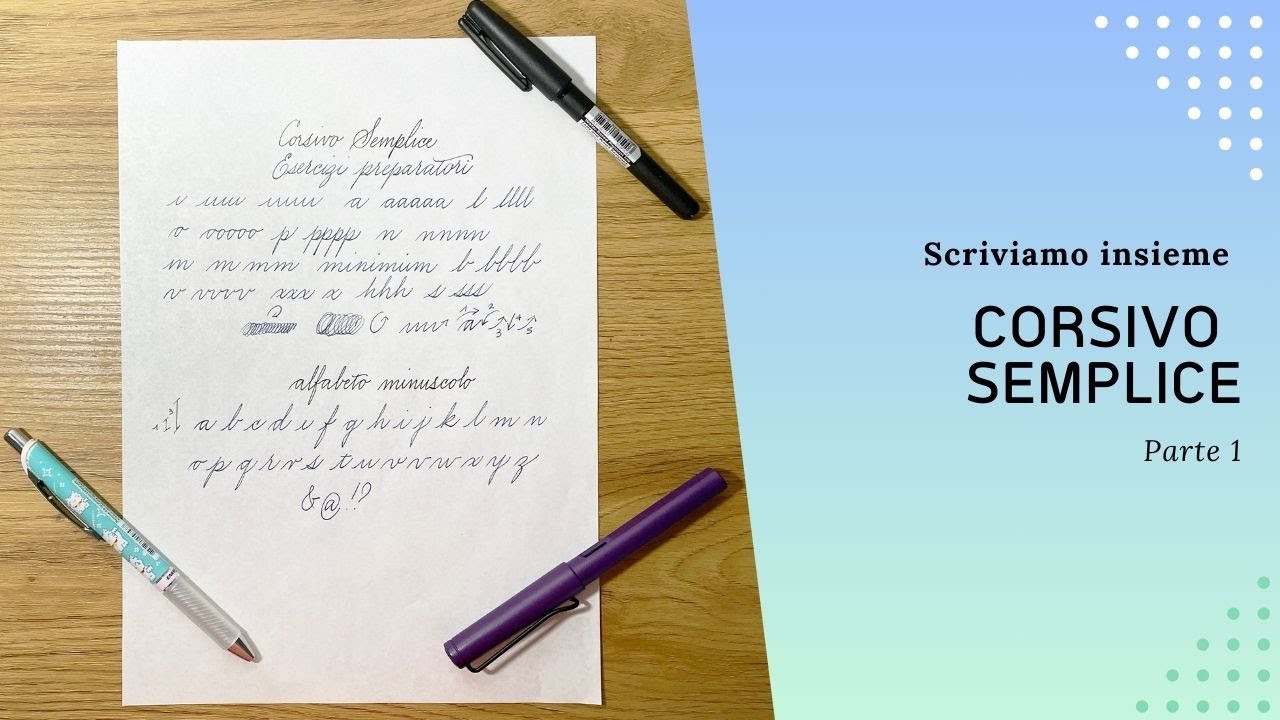 Corsivo Semplice
Esercizi preparatori
a aaaaa l llll
o ooooo p pppp n nnnn
m m mm minimum b bbbb
v vvvv xxx x hhh s sss
alfabeto minuscolo
a b c d e f g h i j k l m n
o p q r r s t u v w x y z
& @ ! ?
Scriviamo insieme
CORSIVO
SEMPLICE
Parte 1